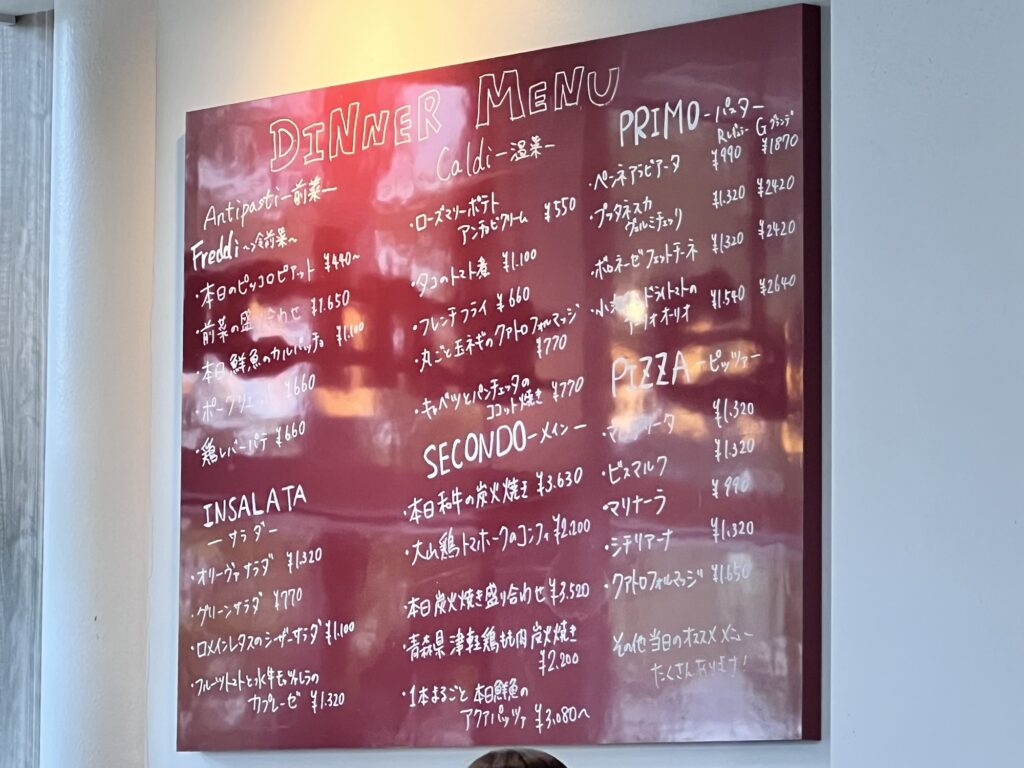 DINNER MENU
Antipasti ー前菜ー
Freddi 〜冷前菜〜
・本日のピッコロピアット ¥440〜
・前菜の盛り合わせ ¥1.650
・本日鮮魚のカルパッチョ ¥1.100
¥660
・鶏レバーパテ ¥660
INSALATA
ーサラダー
・オリーヴァサラダ ¥1.320
・グリーンサラダ ¥770
・ロメインレタスのシーザーサラダ ¥1.100
・フルーツトマトと水牛モッツァレラの
カプレーゼ ¥1.320
Caldi ー温菜ー
・ローズマリーポテト
アンチョビクリーム ¥550
・タコのトマト煮 ¥1.100
・フレンチフライ ¥660
・丸ごと玉ネギのクアトロフォルマッジ
¥770
・キャベツとパンチェッタの
ココット焼き ¥770
SECONDO ーメインー
・本日和牛の炭火焼き ¥3.630
・大山鶏トマホークのコンフィ ¥2.200
・本日炭火焼き盛り合わせ ¥3.520
・青森県津軽鶏もも肉炭火焼き
¥2.200
・1本まるごと本日鮮魚の
アクアパッツァ ¥3,080〜
PRIMO ーパスター
Rレギュラー Gグランデ
・ペンネアラビアータ ¥990 ¥1870
・プッタネスカ
ヴェルミチェッリ ¥1.320 ¥2420
・ボロネーゼフェットチーネ ¥1320 ¥2420
ドライトマトの
アーリオオーリオ ¥1.540 ¥2640
PIZZA ーピッツァー
・マルゲリータ ¥1.320
・ビスマルク ¥1.320
・マリナーラ ¥990
・シチリアーナ ¥1.320
・クアトロフォルマッジ ¥1.650
その他当日のオススメメニュー
たくさんあります！